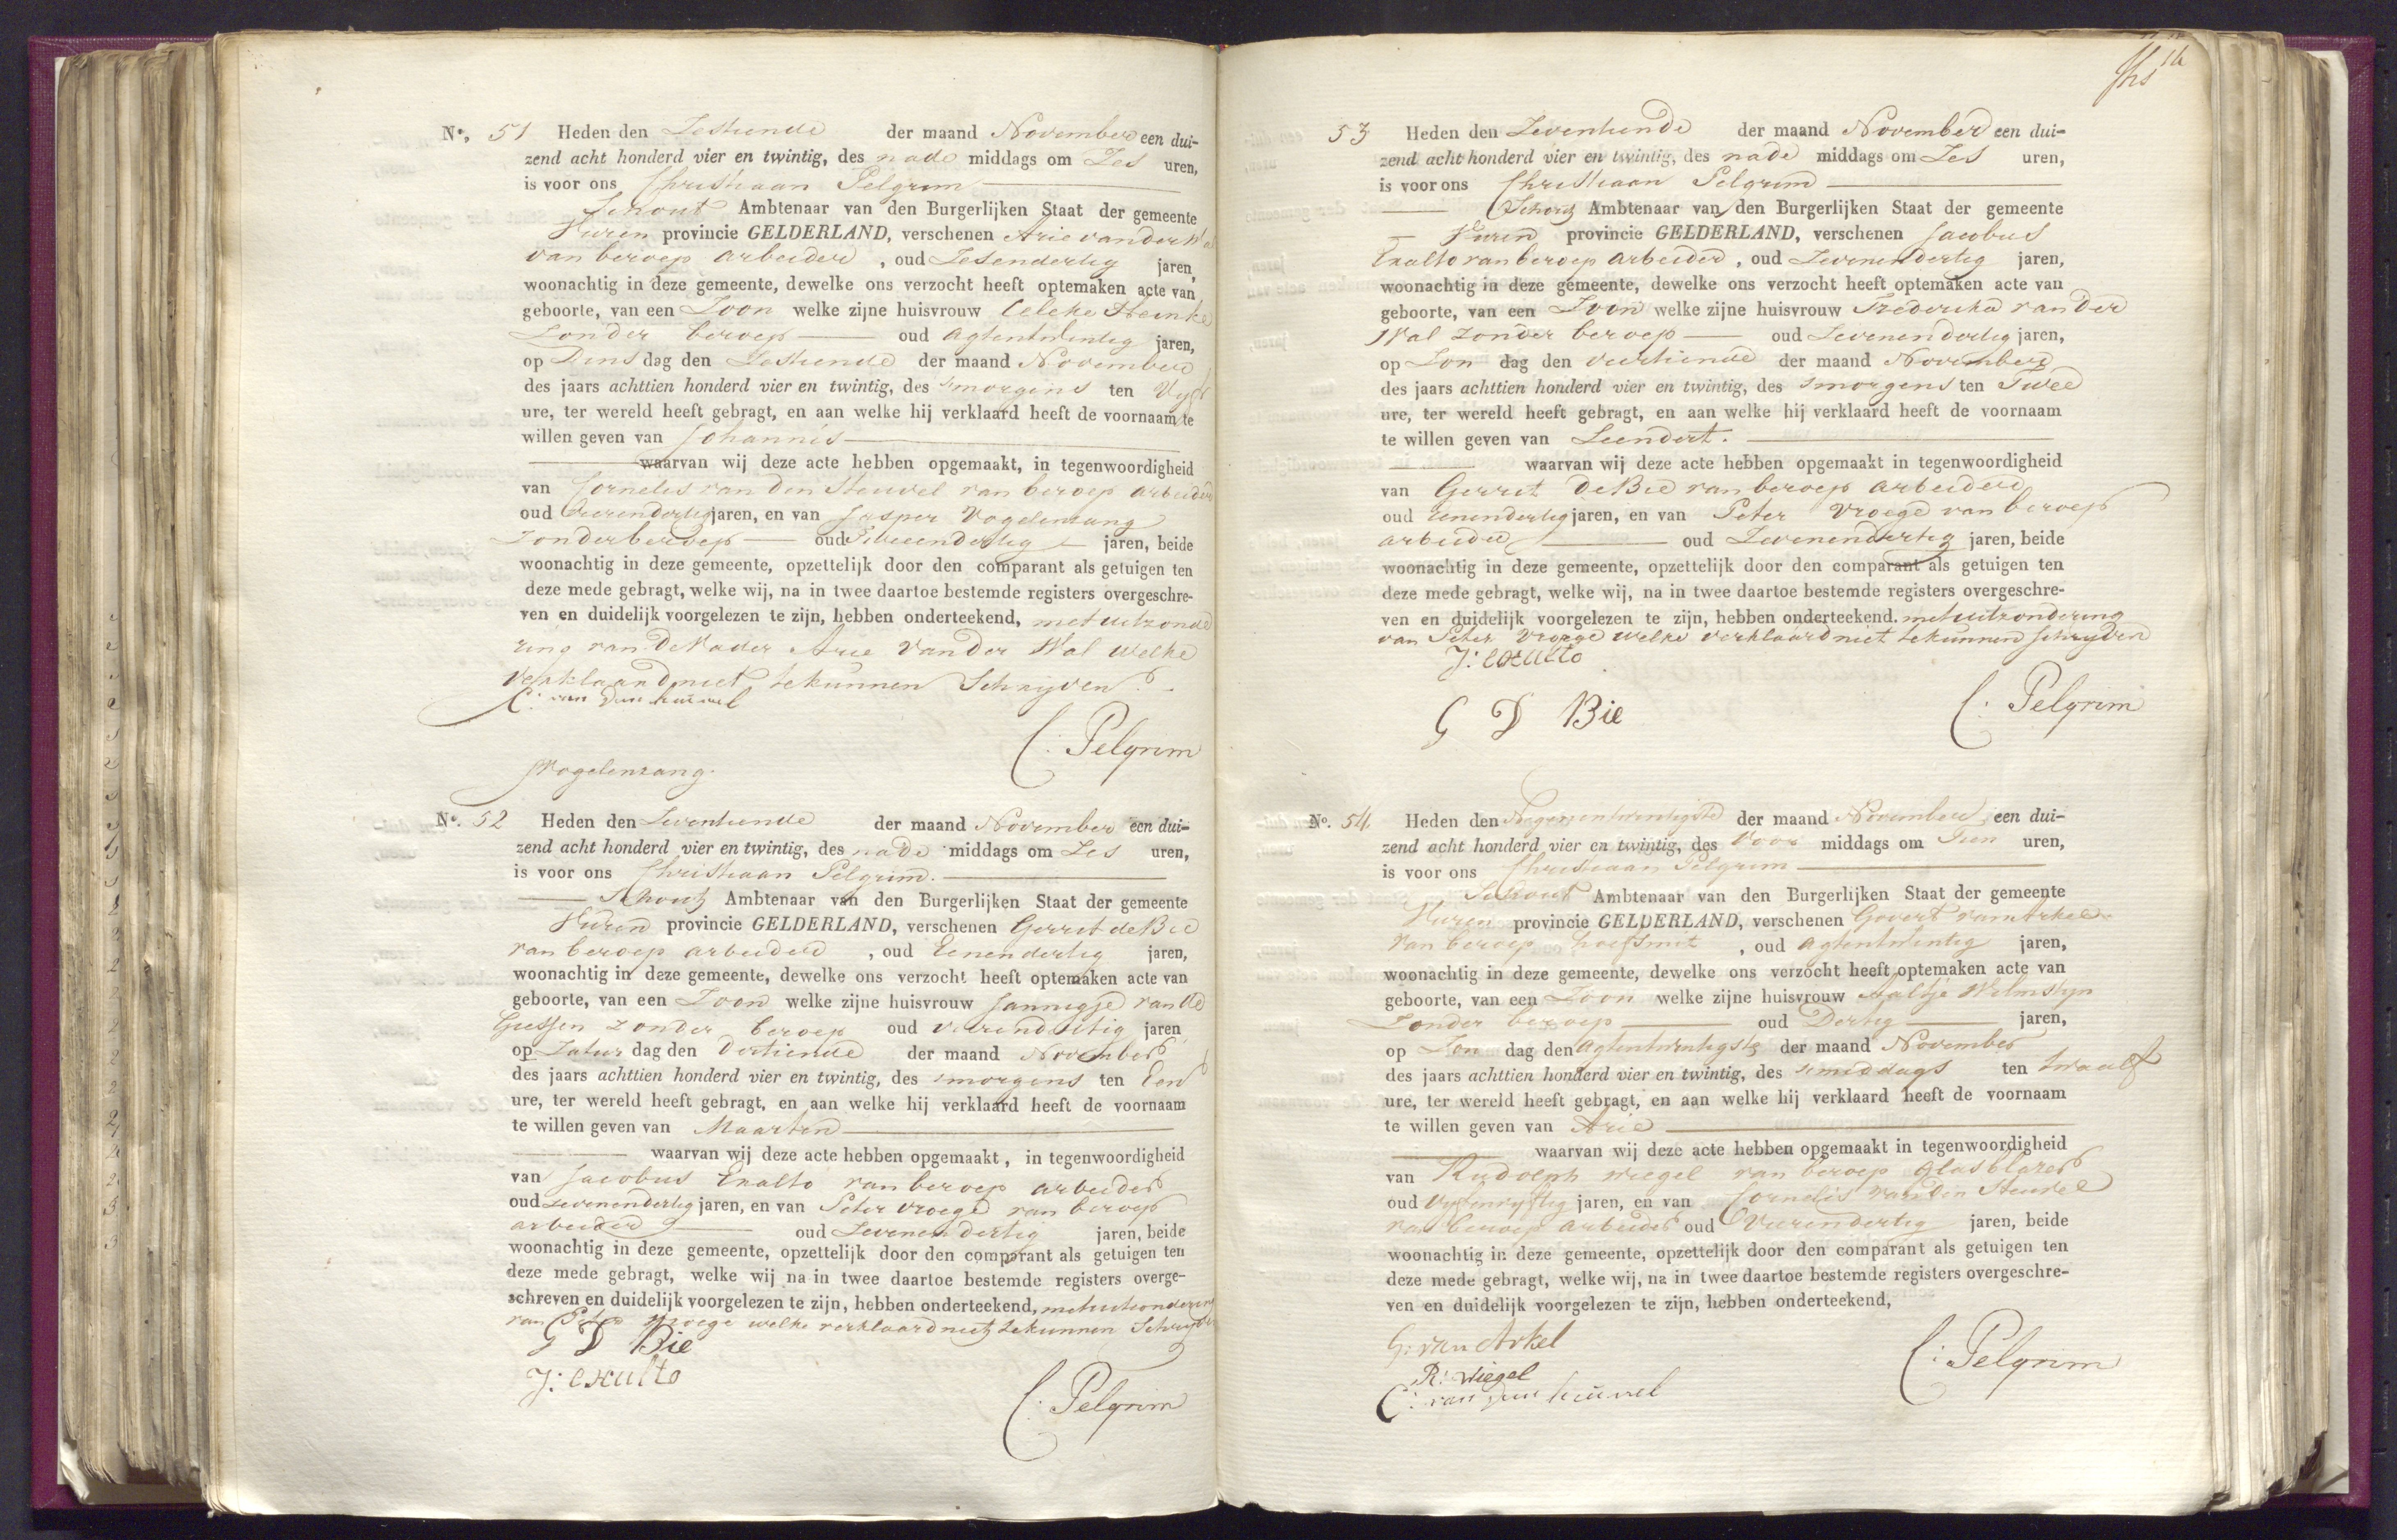 No. 51 Heden den Zestiende der maand November een dui-
zend acht honderd vier en twintig, des nade middags om Zes uren,
is voor ons Christiaan Pelgrim
Schout Ambtenaar van den Burgerlijken Staat der gemeente
Vuren provincie GELDERLAND, verschenen Arie van der Wal
van beroep arbeider, oud Zesendertig jaren,
woonachtig in deze gemeente, dewelke ons verzocht heeft optemaken acte van
geboorte, van een Zoon welke zijne huisvrouw Celeke
Zonder beroep oud agtentwintig jaren,
op Dins dag den Zestiende der maand November
des jaars achttien honderd vier en twintig, des smorgens ten Vyf
ure, ter wereld heeft gebragt, en aan welke hij verklaard heeft de voornaam te
willen geven van Johannis
waarvan wij deze acte hebben opgemaakt, in tegenwoordigheid
van Cornelis van den Heuvel van beroep arbeider
oud Vierendertig jaren, en van Jasper Vogelenzang
Zonder beroep oud Tweeendertig jaren, beide
woonachtig in deze gemeente, opzettelijk door den comparant als getuigen ten
deze mede gebragt, welke wij, na in twee daartoe bestemde registers overgeschre-
ven en duidelijk voorgelezen te zijn, hebben onderteekend, met uitzonde
ring van de Vader Arie van der Wal welke
verklaard niet te kunnen Schrijven.
C: van den heuvel
C: Pelgrim
JVogelenzang.
No. 52 Heden den Zeventiende der maand November een dui-
zend acht honderd vier en twintig, des nade middags om Zes uren,
is voor ons Christiaan Pelgrim.
Schout Ambtenaar van den Burgerlijken Staat der gemeente
Vuren provincie GELDERLAND, verschenen Gerrit de Bie
van beroep arbeider, oud Eenendertig jaren,
woonachtig in deze gemeente, dewelke ons verzocht heeft optemaken acte van
geboorte, van een Zoon welke zijne huisvrouw Jannigje van de
Giessen zonder beroep oud vierendertig jaren
op Zatur dag den dertiende der maand November
des jaars achttien honderd vier en twintig, des smorgens ten Een
ure, ter wereld heeft gebragt, en aan welke hij verklaard heeft de voornaam
te willen geven van Maarten
waarvan wij deze acte hebben opgemaakt, in tegenwoordigheid
van Jacobus Exalto van beroep arbeider
oud zevenendertig jaren, en van Peter Vroege van beroep
arbeider oud Zevenendertig jaren, beide
woonachtig in deze gemeente, opzettelijk door den comparant als getuigen ten
deze mede gebragt, welke wij na in twee daartoe bestemde registers overge-
schreven en duidelijk voorgelezen te zijn, hebben onderteekend, met uitzondering
van Peter Vroege welke verklaard niet te kunnen Schrijven
G D Bie
J: exalto
C: Pelgrim
14
53 Heden den Zeventiende der maand November een dui-
zend acht honderd vier en twintig, des nade middags om Zes uren,
is voor ons Christiaan Pelgrim
Schout Ambtenaar van den Burgerlijken Staat der gemeente
Vuren provincie GELDERLAND, verschenen Jacobus
Exalto van beroep arbeider, oud Zevenendertig jaren,
woonachtig in deze gemeente, dewelke ons verzocht heeft optemaken acte van
geboorte, van een Zoon welke zijne huisvrouw Frederika van der
Wal zonder beroep oud Zevenendertig jaren,
op Zon dag den veertiende der maand November
des jaars achttien honderd vier en twintig, des smorgens ten Twee
ure, ter wereld heeft gebragt, en aan welke hij verklaard heeft de voornaam
te willen geven van Leendert.
waarvan wij deze acte hebben opgemaakt in tegenwoordigheid
van Gerrit de Bie van beroep arbeider
oud eenendertig jaren, en van Peter Vroege van beroep
arbeider oud Zevenendertig jaren, beide
woonachtig in deze gemeente, opzettelijk door den comparant als getuigen ten
deze mede gebragt, welke wij, na in twee daartoe bestemde registers overgeschre-
ven en duidelijk voorgelezen te zijn, hebben onderteekend. met uitzondering
van Peter Vroege welke verklaard niet te kunnen schrijven
J: exalto
G D Bie
C: Pelgrim
No. 54. Heden den Negenentwintigste der maand November een dui-
zend acht honderd vier en twintig, des Voor middags om Tien uren,
is voor ons Christiaan Pelgrim
Schout Ambtenaar van den Burgerlijken Staat der gemeente
Vuren provincie GELDERLAND, verschenen Govert van Arkel
van beroep hoefsmit, oud agtentwintig jaren,
woonachtig in deze gemeente, dewelke ons verzocht heeft optemaken acte van
geboorte, van een Zoon welke zijne huisvrouw Aaltje Wilmstyn
Zonder beroep oud Dertig jaren,
op Zon dag den agtentwintigste der maand November
des jaars achttien honderd vier en twintig, des smiddags ten twaalf
ure, ter wereld heeft gebragt, en aan welke hij verklaard heeft de voornaam
te willen geven van Arie
waarvan wij deze acte hebben opgemaakt in tegenwoordigheid
van Rudolph wiegel van beroep glasblazer
oud Vyfenvyftig jaren, en van Cornelis van den Heuvel
van beroep arbeider oud Vierendertig jaren, beide
woonachtig in deze gemeente, opzettelijk door den comparant als getuigen ten
deze mede gebragt, welke wij, na in twee daartoe bestemde registers overgeschre-
ven en duidelijk voorgelezen te zijn, hebben onderteekend,
G: van Arkel
R: wiegel
C: van den heuvel
C: Pelgrim